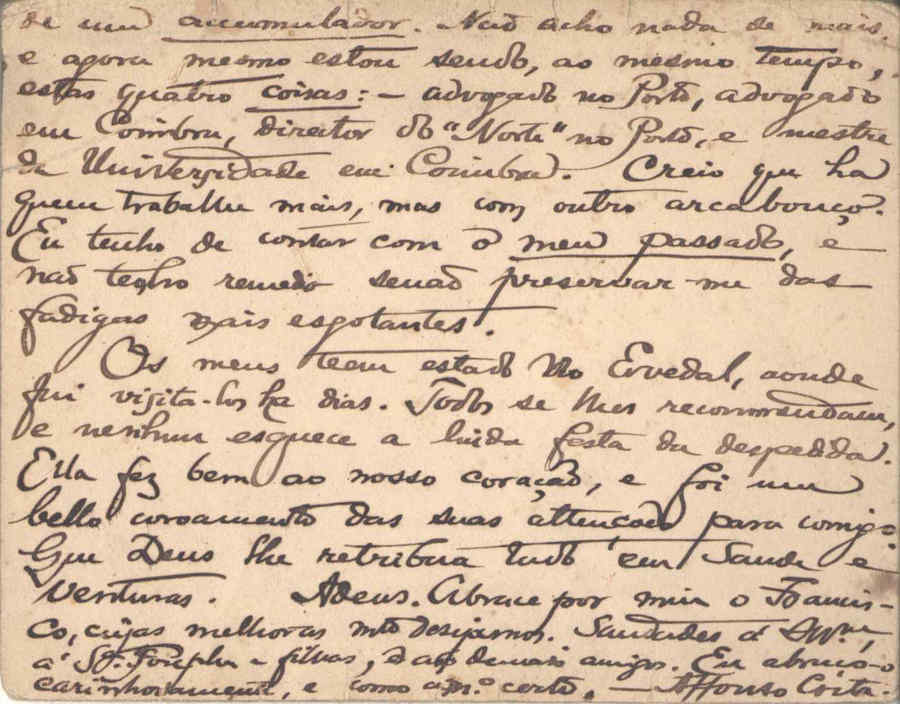 de um accumulador. Não acho nada de mais.
e agora mesmo estou sendo, ao mesmo tempo,
estas quatro coisas: — advogado no Porto, advogado
em Coimbra, director do "Norte" no Porto, e mestre
da Universidade em Coimbra. Creio que ha
quem trabalhe mais, mas com outro arcabouço.
Eu tenho de contar com o meu passado, e
não tenho remedio senão preservar-me das
fadigas mais esgotantes.
Os meus teem estado no Ervedal, aonde
fui visita-los ha dias. Todos se lhes recommendam,
e nenhum esquece a linda festa da despedida.
Ella fez bem ao nosso coração, e foi um
bello coroamento das suas attenções para comigo
Que Deus lhe retribua tudo em Saude e
Venturas. Adeus. Abrace por mim o Francis-
co, cujas melhoras mto desejamos. Saudades á
á Sr.ª e filhas, e aos demais amigos. Eu abraço-o
carinhosamente, e como am.º certo. — Affonso Costa.